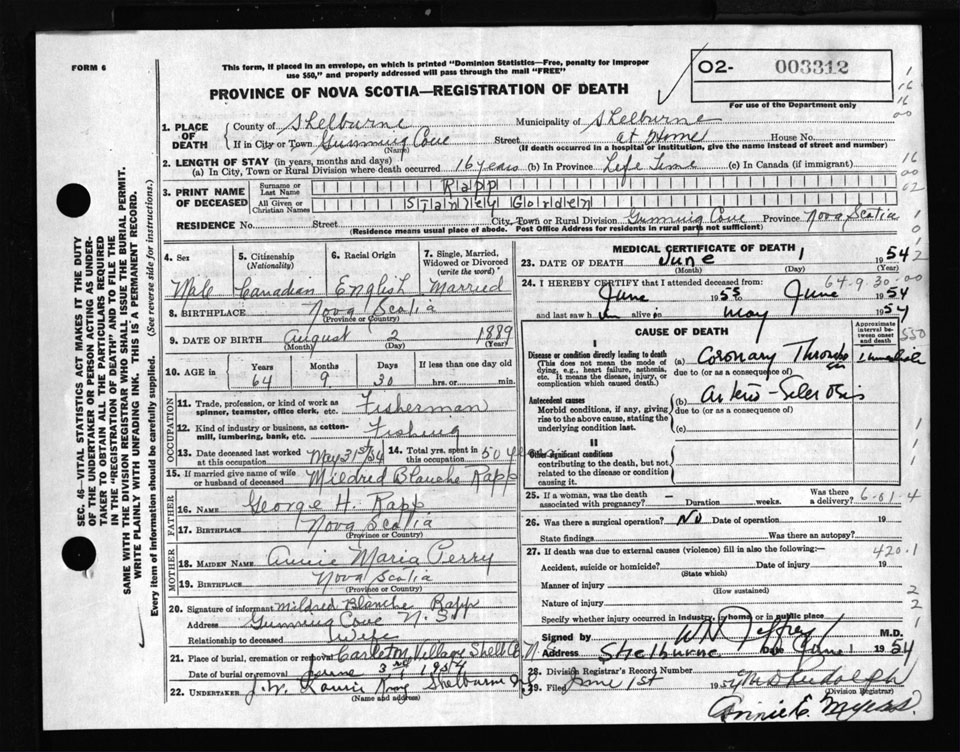 FORM 6
This form, if placed in an envelope, on which is printed "Dominion Statistics—Free, penalty for improper
use $50," and properly addressed will pass through the mail "FREE"
PROVINCE OF NOVA SCOTIA—REGISTRATION OF DEATH
02- 003312
For use of the Department only
1. PLACE OF DEATH
County of Shelburne Municipality of Shelburne
If in City or Town Gunning Cove Street at Home House No.
(Name) (If death occurred in a hospital or institution, give the name instead of street and number)
2. LENGTH OF STAY (in years, months and days)
(a) In City, Town or Rural Division where death occurred 16 years (b) In Province Life Time (c) In Canada (if immigrant)
3. PRINT NAME OF DECEASED
Surname or Last Name Rapp
All Given or Christian Names Stanley Gorden
RESIDENCE No. Street City, Town or Rural Division Gunning Cove Province Nova Scotia
(Residence means usual place of abode. Post Office Address for residents in rural parts not sufficient)
4. Sex Male
5. Citizenship (Nationality) Canadian
6. Racial Origin English
7. Single, Married, Widowed or Divorced (write the word) Married
8. BIRTHPLACE Nova Scotia
(Province or Country)
9. DATE OF BIRTH August 2 1889
(Month) (Day) (Year)
10. AGE in Years 64 Months 9 Days 30 If less than one day hrs. or min.
OCCUPATION
11. Trade, profession, or kind of work as spinner, teamster, office clerk, etc. Fisherman
12. Kind of industry or business, as cotton-mill, lumbering, bank, etc. Fishing
13. Date deceased last worked at this occupation May 31st/54
14. Total yrs. spent in this occupation 50 years
15. If married give name of wife or husband of deceased Mildred Blanche Rapp
FATHER
16. NAME George H. Rapp
17. BIRTHPLACE Nova Scotia
(Province or Country)
MOTHER
18. MAIDEN NAME Annie Maria Perry
19. BIRTHPLACE Nova Scotia
(Province or Country)
20. Signature of informant Mildred Blanche Rapp
Address Gunning Cove N.S.
Relationship to deceased Wife
21. Place of burial, cremation or removal Carleton Village Shelb Co N
Date of burial or removal June 3rd 1954
22. UNDERTAKER Shelburne
(Name and address)
MEDICAL CERTIFICATE OF DEATH
23. DATE OF DEATH June 1 1954
(Month) (Day) (Year)
64-9-30
24. I HEREBY CERTIFY that I attended deceased from:
June 1953 to June 1954
and last saw h im alive on May 1954
CAUSE OF DEATH
Approximate interval between onset and death
I
Disease or condition directly leading to death
(This does not mean the mode of dying, e.g., heart failure, asthenia, etc. It means the disease, injury, or complication which caused death.)
(a) Coronary Thrombosis
due to (or as a consequence of)
Antecedent causes
Morbid conditions, if any, giving rise to the above cause, stating the underlying condition last.
(b) Arterio-Sclerosis
due to (or as a consequence of)
(c)
II
Other significant conditions
contributing to the death, but not related to the disease or condition causing it.
25. If a woman, was the death associated with pregnancy? — Duration weeks. Was there a delivery? 6-01-4
26. Was there a surgical operation? No Date of operation 19
State findings Was there an autopsy?
27. If death was due to external causes (violence) fill in also the following:— 420.1
Accident, suicide or homicide? Date of injury 19
(State which)
Manner of injury
(How sustained)
Nature of injury
Specify whether injury occurred in industry, in home or in public place
Signed by WN Jeffrey M.D.
Address Shelburne Date June 1 1954
28. Division Registrar's Record Number
29. Filed June 1st 1954
(Division Registrar)
Annie E. Myers
SEC. 46—VITAL STATISTICS ACT MAKES IT THE DUTY
OF THE UNDERTAKER OR PERSON ACTING AS UNDER-
TAKER TO OBTAIN ALL THE PARTICULARS REQUIRED
IN THE "REGISTRATION OF DEATH" AND TO FILE THE
SAME WITH THE DIVISION REGISTRAR WHO SHALL ISSUE THE BURIAL PERMIT.
WRITE PLAINLY WITH UNFADING INK. THIS IS A PERMANENT RECORD.
Every item of information should be carefully supplied. (See reverse side for instructions.)